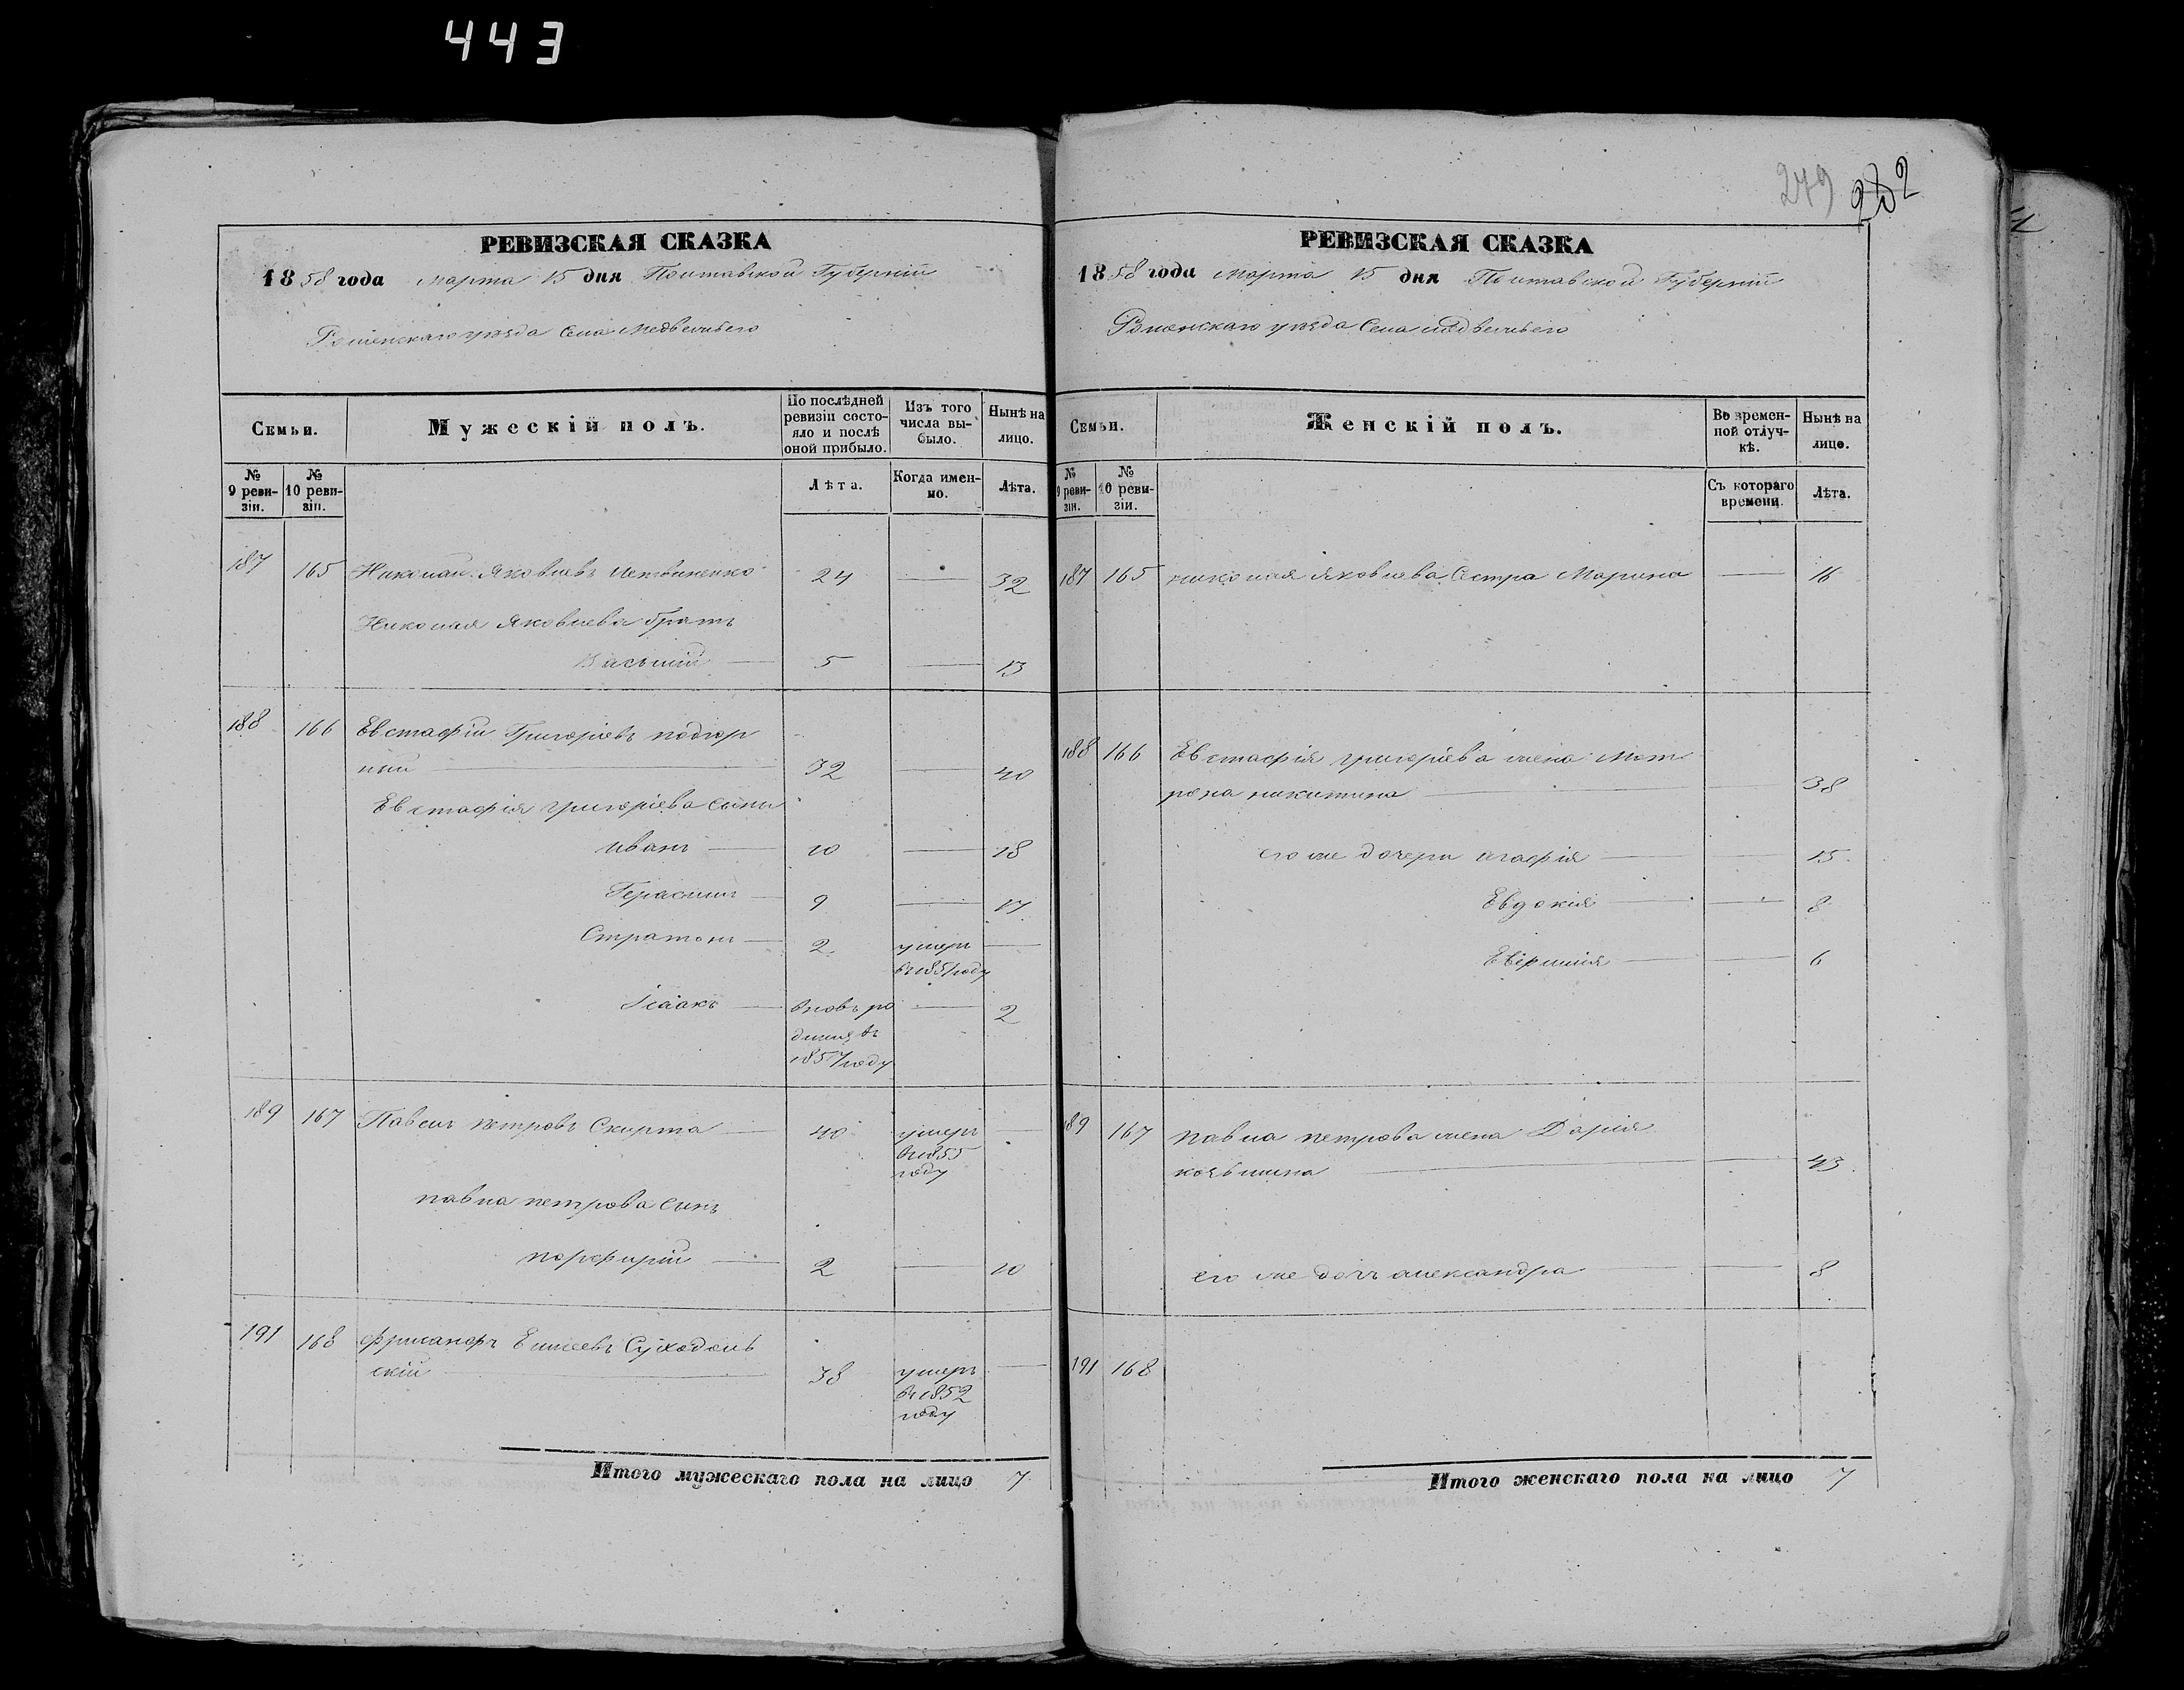 443
РЕВИЗСКАЯ СКАЗКА
1858 года марта 15 дня Полтавской Губерніи
Роменскаго уѣзда Села Медвежьего
Семьи.
Мужескій полъ.
По послѣдней ревизіи состояло и послѣ оной прибыло.
Изъ того числа выбыло.
Нынѣ на лицо.
№ 9 ревизіи.
№ 10 ревизіи.
Лѣта.
Когда именно.
Лѣта.
187 165 Николай Яковлевъ Литвиненко 24 — 32
Николая Яковлева братъ
Василий — 5 — 13
188 166 Евстафій Григоріевъ подгор
ный — 32 — 40
Евстафія григоріева сыны
иванъ — 10 — 18
Герасимъ — 9 — 17
Стратонъ — 2 умеръ —
въ 1851 году
Ісаакъ — вновь ро — 2
дился въ
1857 году
189 167 Павелъ петровъ Скирта — 40 умеръ —
въ 1855
году
павла петрова сынъ
порфирий — 2 — 10
191 168 Елисеевъ Суходоль
скій — 38 умеръ —
въ 1852
году
Итого мужескаго пола на лицо 7
279 282
РЕВИЗСКАЯ СКАЗКА
1858 года марта 15 дня Полтавской Губерніи
Роменскаго уѣзда Села медвежьего
Семьи.
Женскій полъ.
Во временной отлучкѣ.
Нынѣ на лице.
№ 9 ревизіи.
№ 10 ревизіи.
Съ котораго времени.
Лѣта.
187 165 николая Яковлева Сестра Марина — 16
188 166 Евстафія григоріева жена Мат
рона никитина — 38
его же дочери агафія — — 15
Евдокия — — 8
— — 6
189 167 павла петрова жена Дарія
— — 43
его же дочь александра — — 8
191 168
Итого женскаго пола на лицо 7